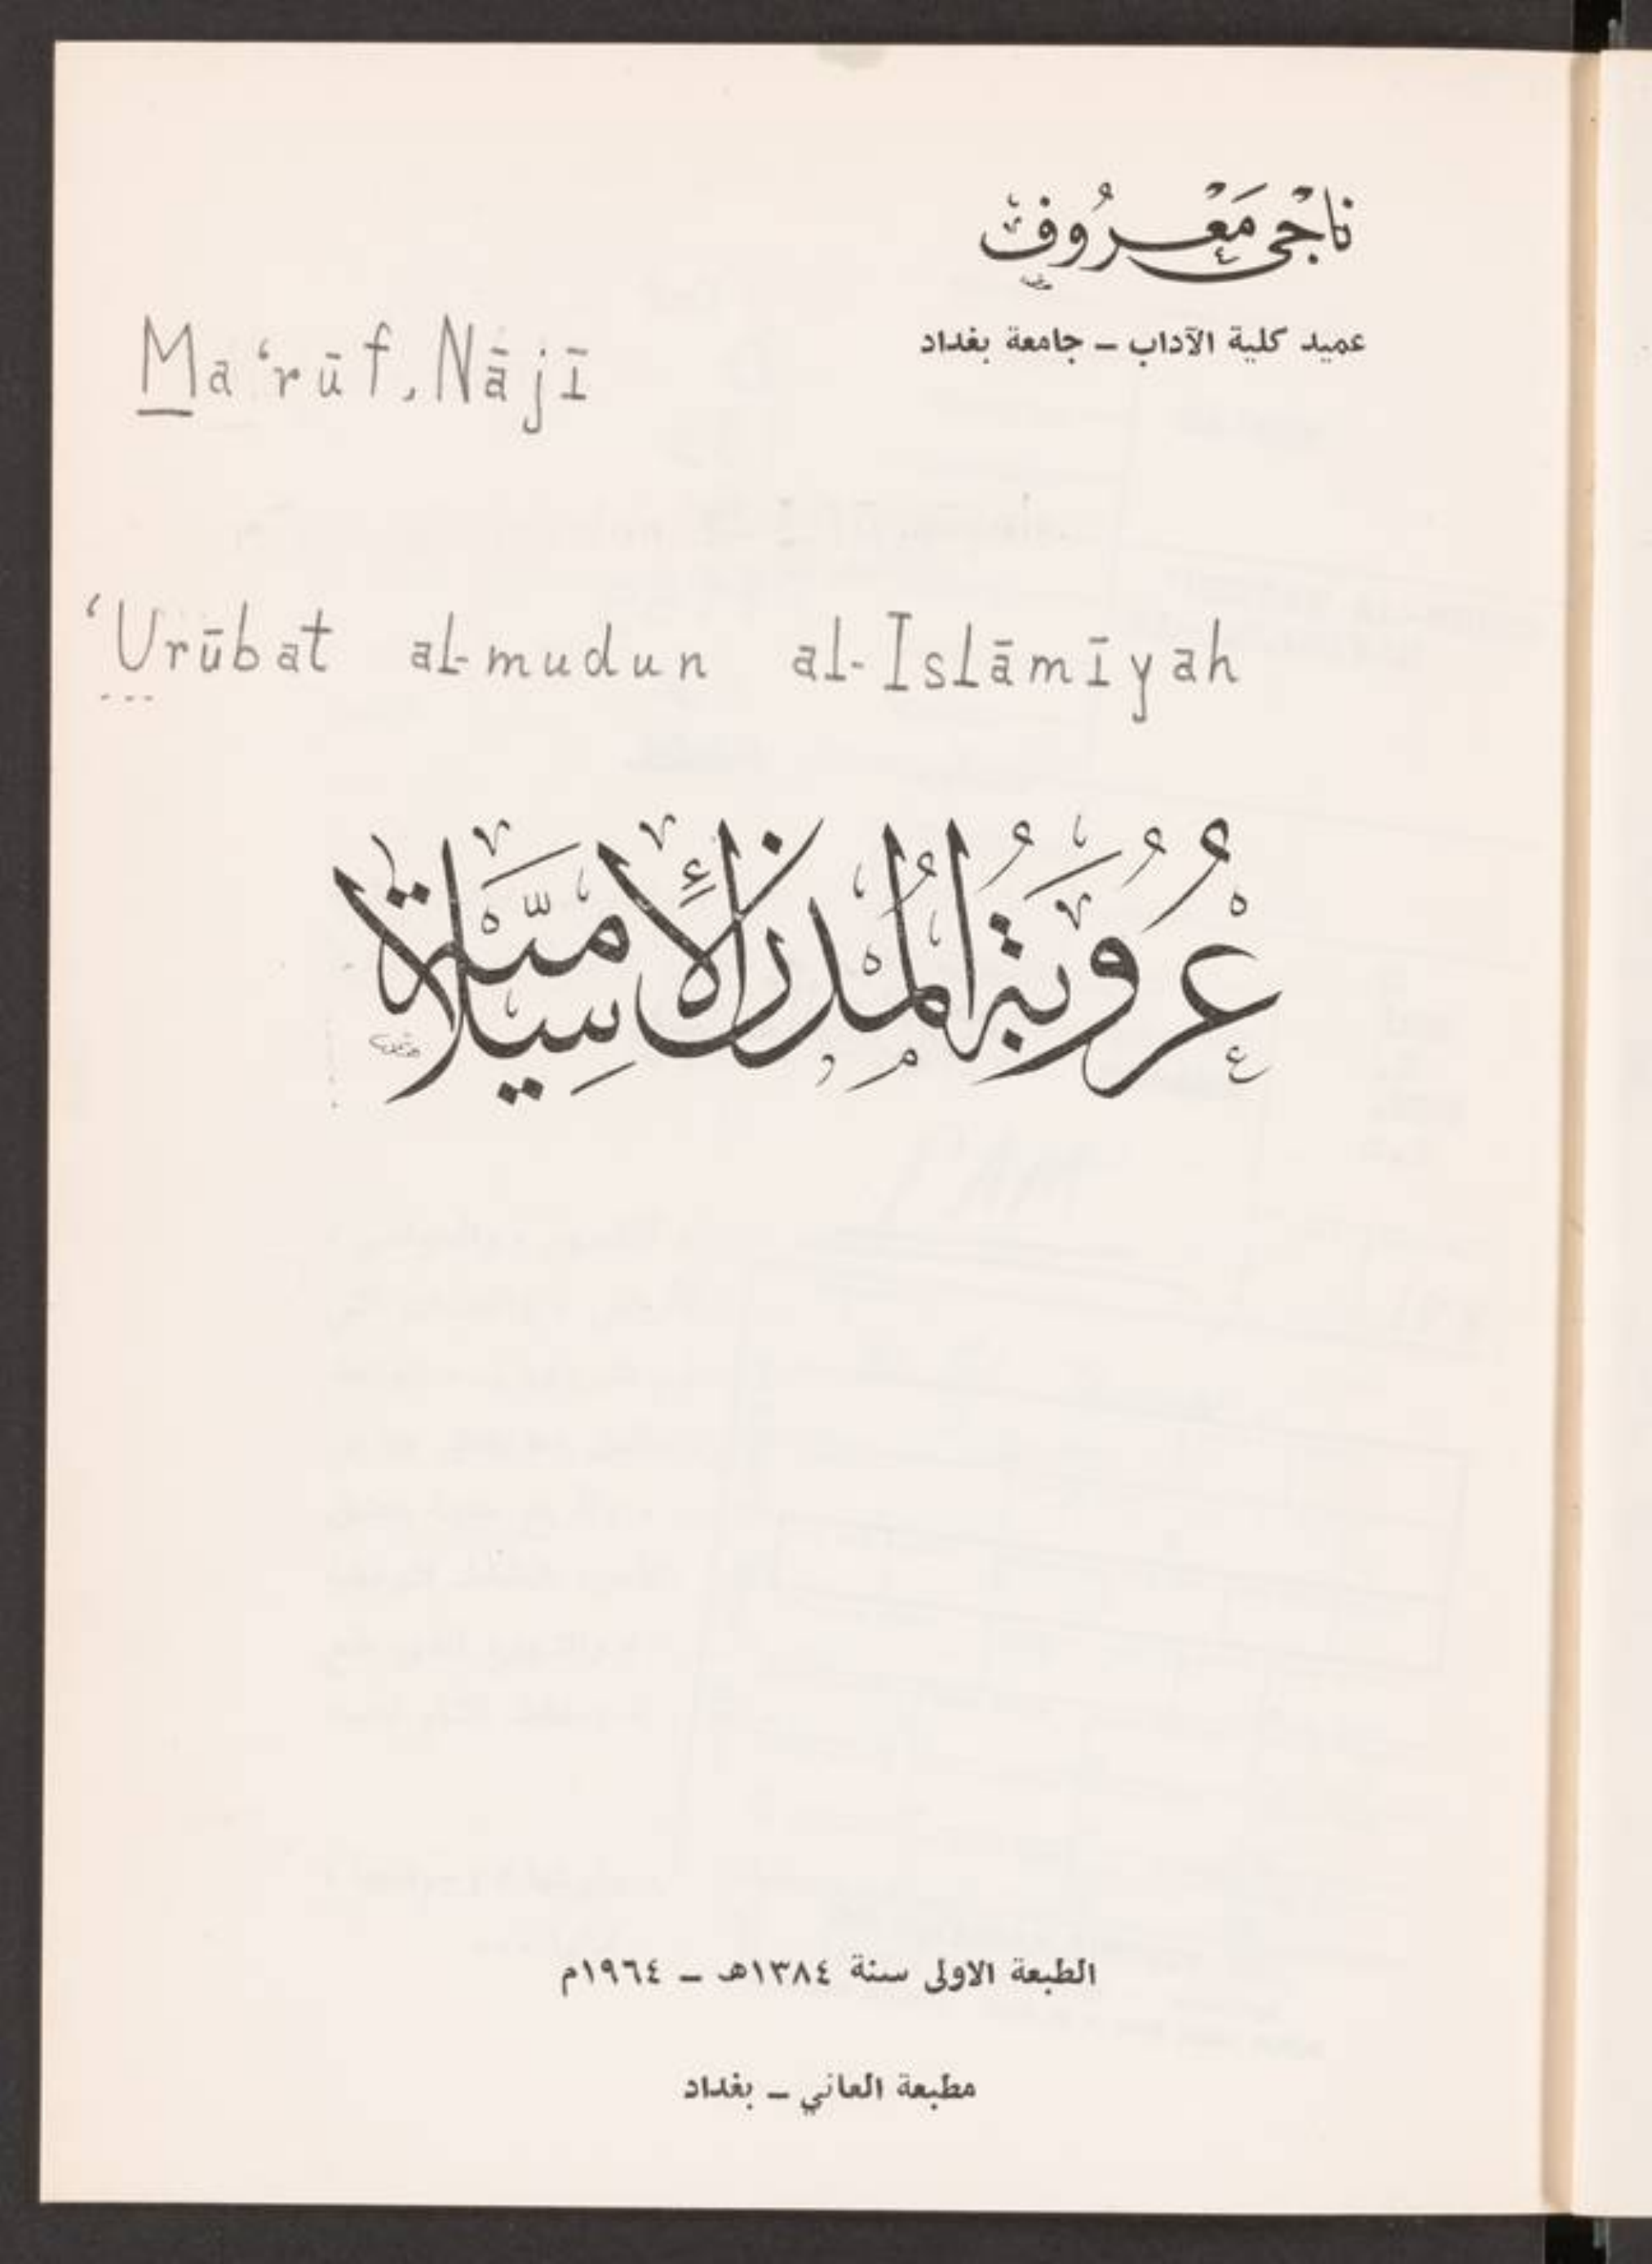 ناجي معروف
عميد كلية الآداب – جامعة بغداد
Ma‘rūf, Nājī
‘Urūbat al-mudun al-Islāmīyah
عُرُوبَةُ المُدُنِ الإِسْلَامِيَّةِ
الطبعة الاولى سنة ١٣٨٤هـ – ١٩٦٤م
مطبعة العاني – بغداد